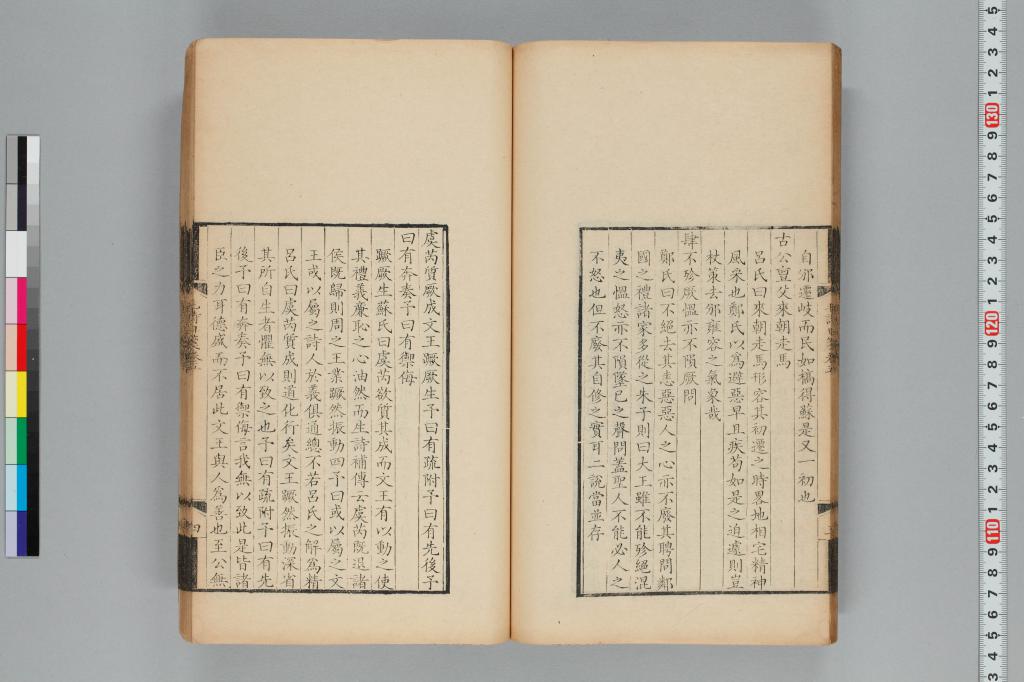 自邠遷岐而民如槁得蘇是又一初也
古公亶父來朝走馬
呂氏曰來朝走馬形容其初遷之時畧地相宅精神
風采也鄭氏以為避惡早且疾苟如是之迫遽則豈
杖策去邠雍容之氣象哉
肆不殄厥慍亦不隕厥問
鄭氏曰不絕去其恚惡惡人之心亦不廢其聘問鄰
國之禮諸家多從之朱子則曰大王雖不能殄絕混
夷之慍怒亦不隕墜己之聲問蓋聖人不能必人之
不怒也但不廢其自修之實耳二說當並存
虞芮質厥成文王蹶厥生予曰有疏附予曰有先後予
曰有奔奏予曰有禦侮
蹶厥生蘇氏曰虞芮欲質其成而文王有以動之使
其禮義廉恥之心油然而生詩補傳云虞芮既退諸
侯既歸則周之王業蹶然振動四予曰或以屬之文
王或以屬之詩人於義俱通總不若呂氏之解為精
呂氏曰虞芮質成則道化行矣文王蹶然振動深省
其所自生者懼無以致之也予曰有疏附予曰有先
後予曰有奔奏予曰有禦侮言我無以致此是皆諸
臣之力耳德盛而不居此文王與人為善也至公無
四
130
120
110